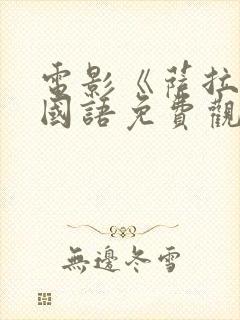 電影《薩拉
國語免費觀
無邊冬雪